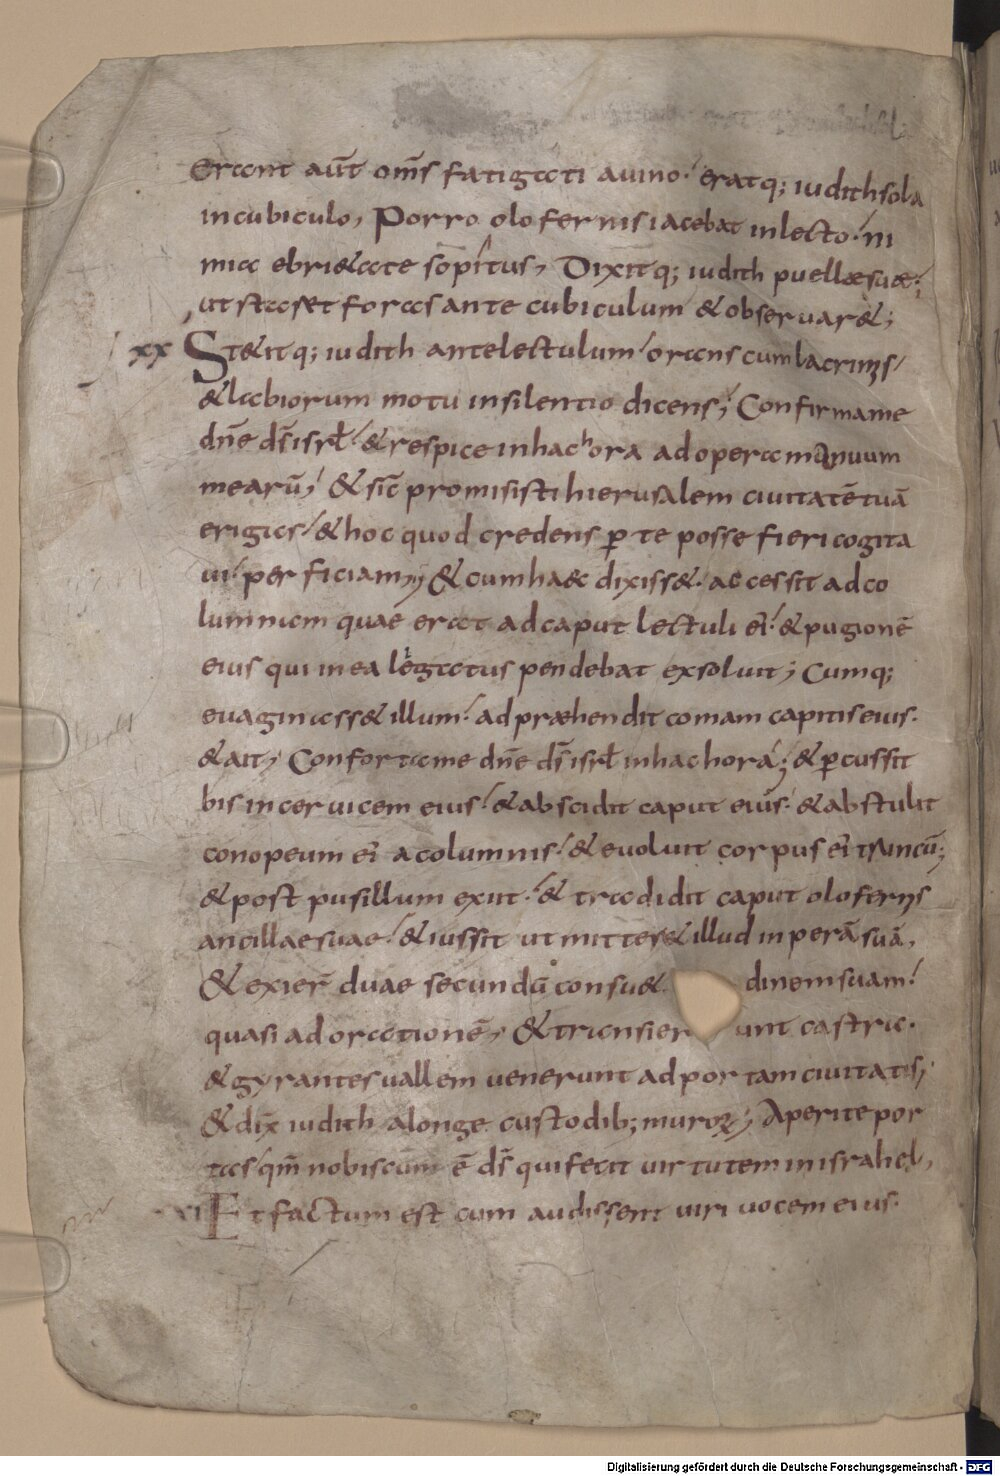 Erant aūt om̄s fatigati auino. eratq; iudith sola
incubiculo, Porro olofernis iacebat inlecto. ni
mia ebri&ate sopitus, Dixitq; iudith puellae suae;
ut star&et foras ante cubiculum & obseruar&;
xx St&itq; iudith antelectulum orans cum lacrimis
& labiorum motu insilentio dicens; Confirma me
dn̄e ds̄ isrł & respice inhac hora ad opera manuum
mearū; & sic̄ promisisti hierusalem ciuitatē tuā
erigas & hoc quod credens ꝑ te posse fieri cogita
ui. perficiam; & cum haec dixiss&. accessit adco
lumnam quae erat adcaput lectuli ei & pugionē
eius qui inea legatus pendebat exsoluit; Cumq;
euaginass& illum. adpraehendit comam capitis eius.
& ait; Conforta me dn̄e ds̄ isrł inhac hora; & ꝑcussit
bis incer uicem eius. & abscidit caput eius. & abstulit
conopeum ei acolumnis. & euoluit corpus ei truncū;
& post pusillum exiit. & tradidit caput olofernis
ancillae suae. & iussit ut mitter& illud inperā suā,
& exier̄ duae secundū consu& dinem suam.
quasi adorationē, & transier unt castra.
& gyrantes uallem uenerunt adportam ciuitatis;
& dix̄ iudith alonge custodib; muroꝝ; Aperite por
tas qm̄ nobiscum ē ds̄ qui fecit uirtutem inisrahel,
xxi Et factum est cum audissent uiri uocem eius.
Digitalisierung gefördert durch die Deutsche Forschungsgemeinschaft - DFG